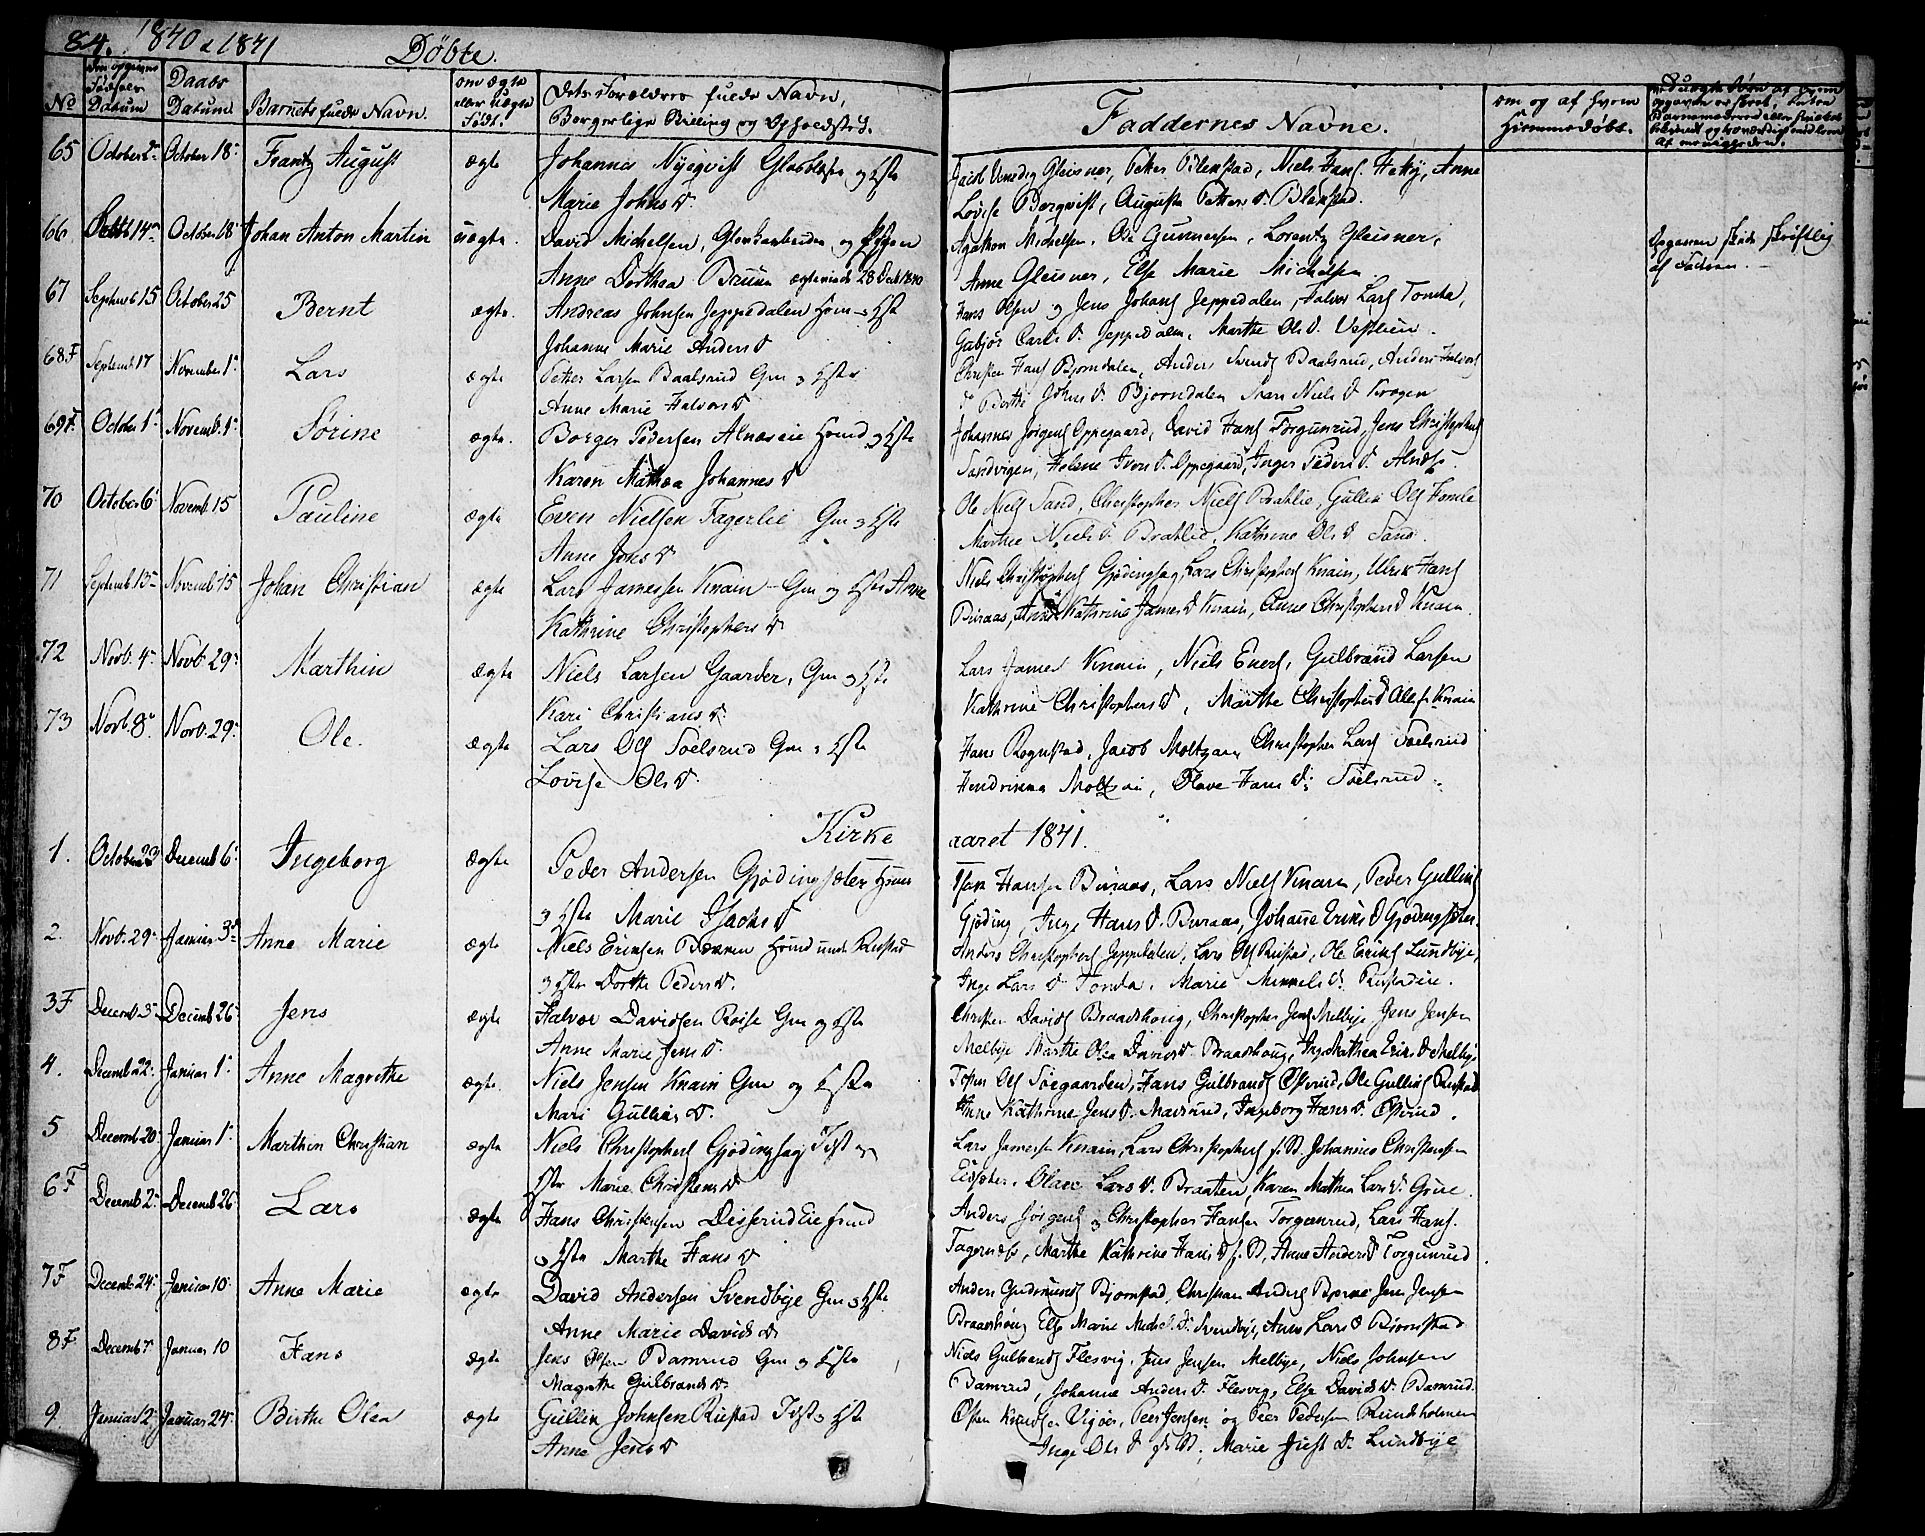 84. 1840 & 1841
Döbte.
No
Födsels Datum
Daabs Datum
Barnets fulde Navn.
om ægte eller uægte Födt.
Forældres fulde Navn,
Borgerlige Stilling og Opholdsted.
Faddernes Navne.
om og af hvem Hjemmedöbt.
65 October 2 October 18 Frantz August ægte Johannes Nyeqvist Glasblæser og Hstr
Marie Johns D
Jacob Gleisner, Petter Blekstad, Niels Hans. Anne
Lovise Bergqvist, Augusta Petters D. Blekstad.
66 Octb 14 October 18 Johan Anton Martin uægte. David Michelsen, og Pigen
Anne Dorthea Bruun
Agathon Michelsen, Ole Gunnersen, Lorentz Gleisner,
Anne Gleisner, Else Marie Michelsen.
Opgaven skede skriftlig
af Faderen.
67 Septemb 15 October 25 Bernt ægte. Andreas Johnsen Jeppedalen Hsm & Hst
Johanne Marie Anders D
Hans Olsen og Jens Johans Jeppedalen, Halvor Lars Tomta,
Carls D. Jeppedalen, Marthe Ols D.
68F Septemb 17 November 1 Lars ægte Petter Larsen Baalsrud Gm og Hstr
Anne Marie Halvors D
Christen Hans Bjørndalen, Anders Svends Baalsrud, Anders Halvors
Berthe Johns D. Bjørndalen Niels D Krogen
69F. October 1 Novemb. 1 Sørine ægte. Borger Pedersen Alnæseie Hsmd og Hstr
Karen Mathea Johannes D
Johannes Jørgens Oppegaard, David Hans Torgunrud, Jens Christophers
Sandvigen, Helene Ivers D. Oppegaard, Inger Peders D. Alnæs.
70 October 6 Novemb 15 Pauline ægte Even Nielsen Fagerlie Gm og Hstr
Anne Jens D
Ole Niels Sand, Christopher Niels Bratlie, Gullik Ols Homle
Marthe Niels D Bratlie, Kathrine Ols D Sand.
71 Septemb. 13 Novemb 15 Johan Christian ægte Lars Jamessen Knain Gm og Hstr Anne
Kathrine Christophers D
Niels Christophers Gjødingsag, Lars Christophers Knain, Ulrik Hans
Buraas, Anne Kathrine James D Knain, Anne Christophers D Knain.
72 Novb. 4 Novb. 29 Marthin ægte Niels Larsen Gaarder, Gm og Hstr
Kari Christians D.
Lars James Knain, Niels Evers, Gulbrand Larsen
Kathrine Christophers D, Marthe Christophers D Knain
73 Novb. 8 Novb. 29 Ole. ægte Lars Ols Soelsrud Gm og Hstr
Lovise Ols D.
Hans Rognstad, Jacob Moltzau, Christopher Lars Soelsrud
Moltzau, Olave Hans D. Soelsrud.
Kirke aaret 1841.
1. October 23 Decemb 6 Ingeborg ægte Peder Andersen Gjødingsæter
og Hstr Marie Jsachs D
Isak Hansen Buraas, Lars Niels Knain, Peder Gulliks
Gjøding, Inge Hans D. Buraas, Johanne Eriks D Gjødingsæter.
2. Novb. 29 Januar 3 Anne Marie ægte Niels Eriksen Hsmd under Ruistad
og Hstr Dorthe Peders D.
Anders Christophers Jeppedalen, Lars Ols Ruistad, Ole Eriks Lundbye,
Inge Lars D Tomta, Marie Mikkels D.
3F Decemb. 3 Decemb 26 Jens ægte Halvor Davidsen Roise Gm og Hstr
Anne Marie Jens D.
Christen Davids Braadshoug, Christopher Jens Melbye, Jens Jensen
Melbye Marthe Olea Davids D. Braadshoug, Inge Mathea Eriks D Melbye
4. Decemb 22 Januar 1 Anne Magrethe ægte. Niels Jensen Knain Gm og Hstr
Mari Gulliks D.
Ols Soegaarden, Hans Gulbrands Opsrud, Ole Gulliks Ruistad
Anne Kathrine Jens D. Mausund, Ingeborg Hans D.
5 Decemb 20 Januar 1 Marthin Christian ægte Niels Christophers Gjødingsag
Hstr Marie Christens D
Lars Jamessen Knain, Lars Christophers Johannes Christensen
Olave Lars D. Braaten, Karen Mathea Lars D.
6F Decemb 2 Decemb 26 Lars ægte Hans Christensen Disserud Eie Hsmd
og Hstr Marthe Hans D
Anders Jørgens og Christopher Hansen Torgunrud, Lars Hans.
Fagernæs, Marthe Kathrine Hans D, Anne Anders D Torgunrud
7F Decemb 24 Januar 10 Anne Marie ægte David Andersen Svendbye Gm og Hstr
Anne Marie Davids D
Anders Gudmunds Bjørnstad, Christian Anders Bjerke Jens Jensen
Braadshoug Else Marie Svendbye, Anne Lars D Bjørnstad
8F Decemb 7 Januar 10 Hans ægte Jens Olsen Bamrud Gm og Hstr
Magrethe Gulbrands D.
Niels Gulbrands Flesvig, Jens Jensen Melbye, Niels Johnsen
Bamrud, Johanne Anders D. Flesvig, Else Davids D. Bamrud.
9 Januar 2 Januar 24 Birthe Olea ægte Gullik Johnsen Ruistad Hstr
Anne Jens D
Osten Knudsen Vigøer, Peer Jensen og Peer Pedersen Rundholmen
Inge Ols D, Marie D. Lundbye